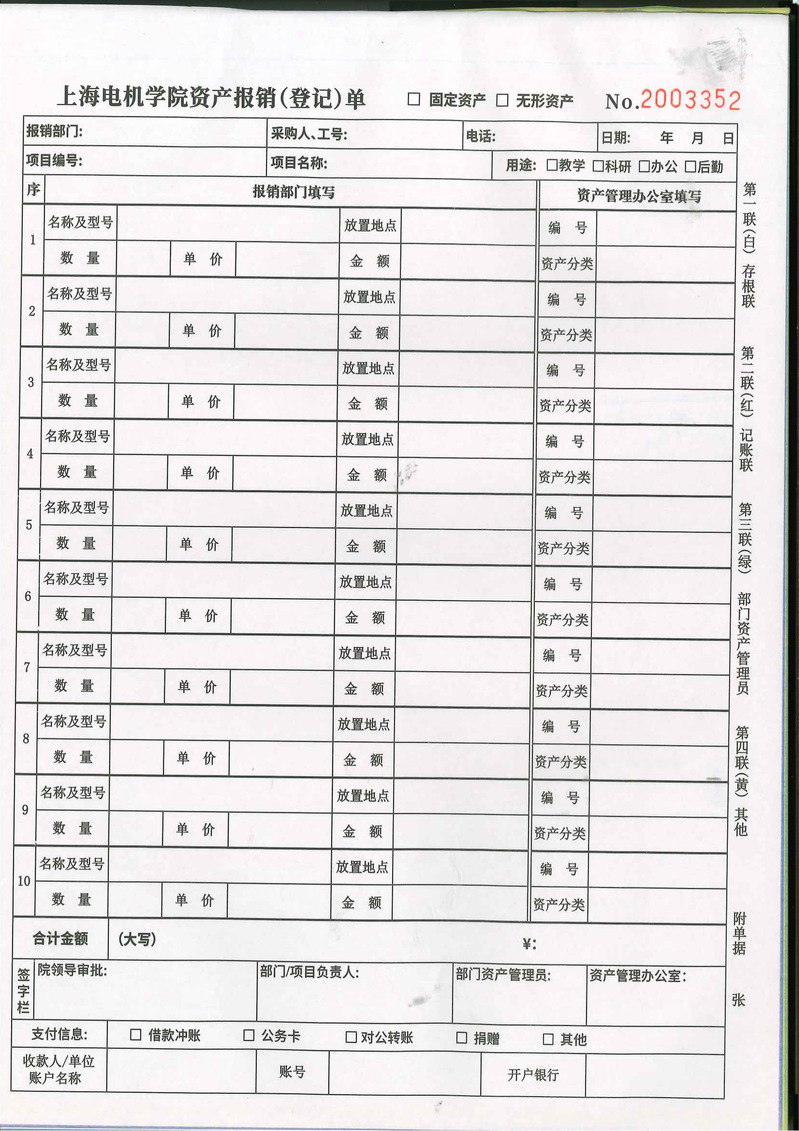 上海电机学院资产报销(登记)单 □ 固定资产 □ 无形资产 No.2003352
报销部门: 采购人、工号: 电话: 日期: 年 月 日
项目编号: 项目名称: 用途: □教学 □科研 □办公 □后勤
序 报销部门填写 资产管理办公室填写
1 名称及型号 放置地点 编 号
数 量 单 价 金 额 资产分类
2 名称及型号 放置地点 编 号
数 量 单 价 金 额 资产分类
3 名称及型号 放置地点 编 号
数 量 单 价 金 额 资产分类
4 名称及型号 放置地点 编 号
数 量 单 价 金 额 资产分类
5 名称及型号 放置地点 编 号
数 量 单 价 金 额 资产分类
6 名称及型号 放置地点 编 号
数 量 单 价 金 额 资产分类
7 名称及型号 放置地点 编 号
数 量 单 价 金 额 资产分类
8 名称及型号 放置地点 编 号
数 量 单 价 金 额 资产分类
9 名称及型号 放置地点 编 号
数 量 单 价 金 额 资产分类
10 名称及型号 放置地点 编 号
数 量 单 价 金 额 资产分类
合计金额 (大写) ¥:
签字栏 院领导审批: 部门/项目负责人: 部门资产管理员: 资产管理办公室:
支付信息: □ 借款冲账 □ 公务卡 □ 对公转账 □ 捐赠 □ 其他
收款人/单位
账户名称 账号 开户银行
第一联(白) 存根联 第二联(红) 记账联 第三联(绿) 部门资产管理员 第四联(黄) 其他
附单据 张